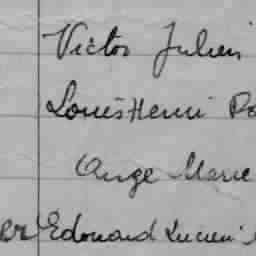 Victor Julien
Louis Henri
Ange Marie
Edouard Lucien